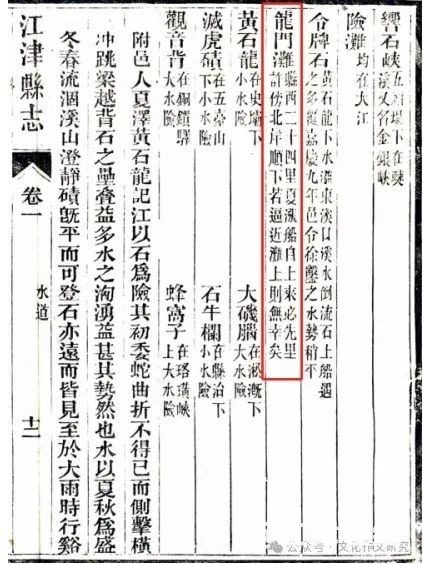 響石峽
場下在
溪又名金峽
險灘均在大江
令牌石黃石龍下水港東溪口溪水倒流石上船遇
之多覆嘉慶九年邑令徐鑿之水勢稍平
龍門灘縣西二十四里夏漲船自上來必先里
許傍北岸順下若逼近灘上則無幸矣
黃石龍在史壩下
小水險
大磯腦在淞溉下
大水險
滅虎磧在五臺山
下小水險
石牛欄在縣治下
小水險
觀音背在銅鑵驛
大水險
蜂窩子在珞璜峽
上大水險
附邑人夏澤黃石龍記江以石爲險其初委蛇曲折不得已而側擊橫
冲跳梁越背石之壘叠益多水之洶湧益甚其勢然也水以夏秋爲盛
冬春流涸溪山澄靜磧旣平而可登石亦遠而皆見至於大雨時行谿
江津縣志 卷一 水道 十二
公众号·文化文研究